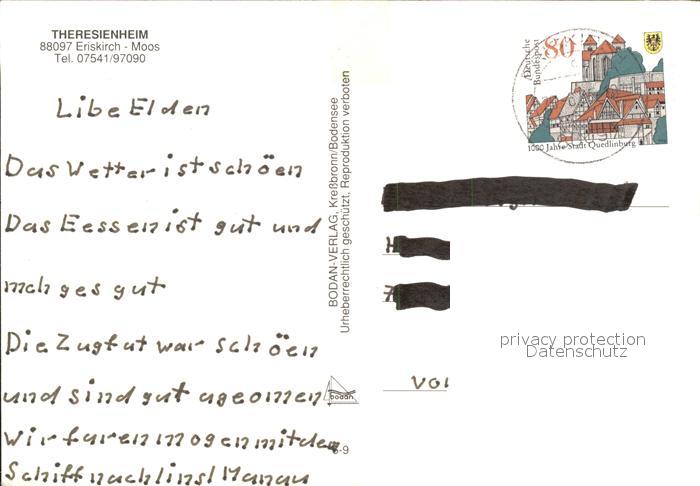 THERESIENHEIM
88097 Eriskirch - Moos
Tel. 07541/97090
Libe Elden
Das Wetter ist schöen
Das Eessen ist gut und
mch ges gut
Die Zugfut war schöen
und sind gut ageomen
wir faren mogen mit dem
Schiff nach Iinsl Manau
BODAN-VERLAG, Kreßbronn/Bodensee
Urheberrechtlich geschützt, Reproduktion verboten
bodan
6-9
Deutsche
Bundespost
80
1000 Jahre Stadt Quedlinburg
H
7
privacy protection
Datenschutz